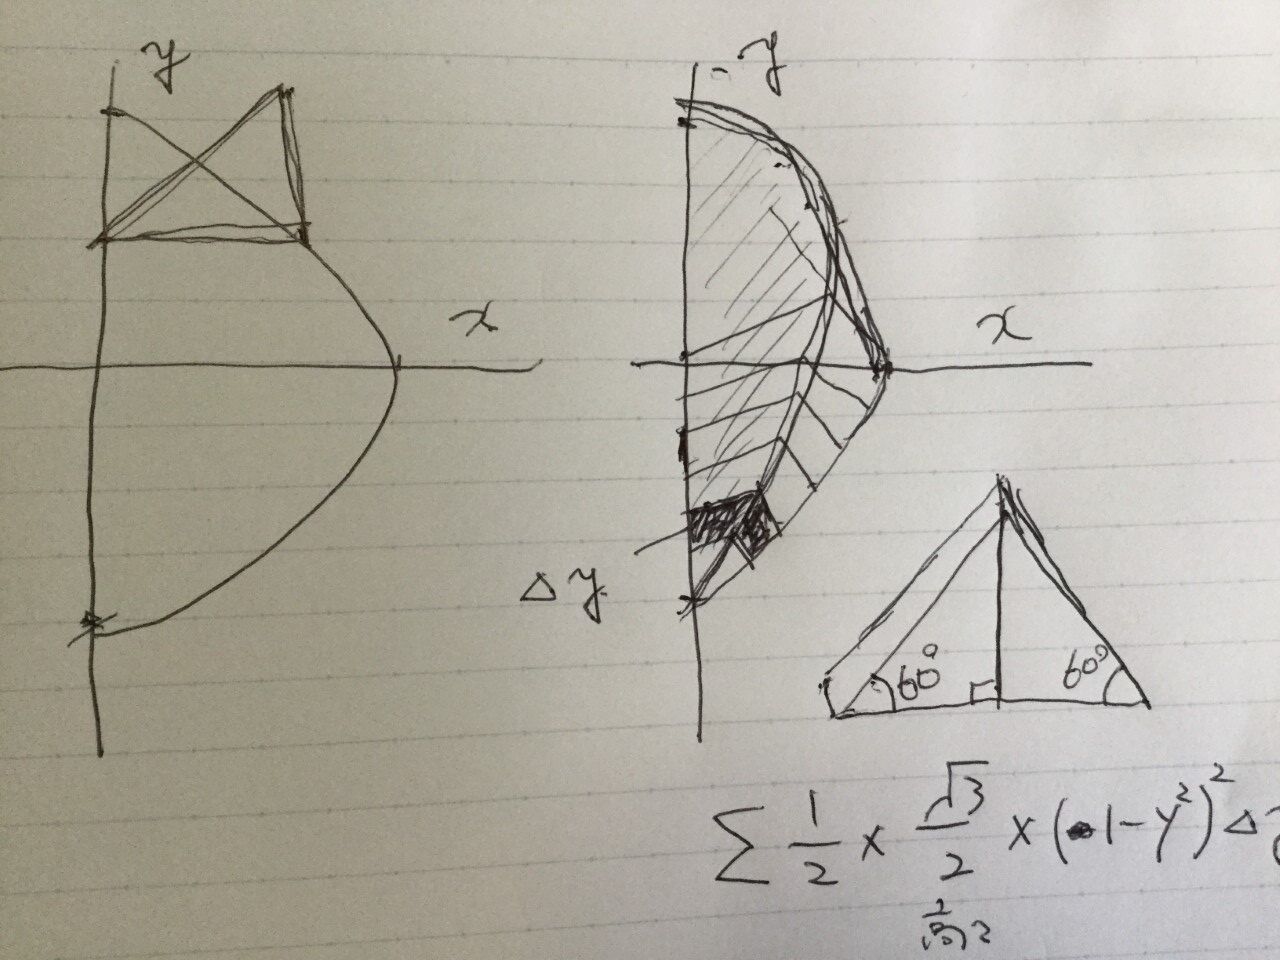 y
x
y
x
Δy
60°
60°
∑ 1/2 × √3/2 × (1-y²)² Δ
高さ